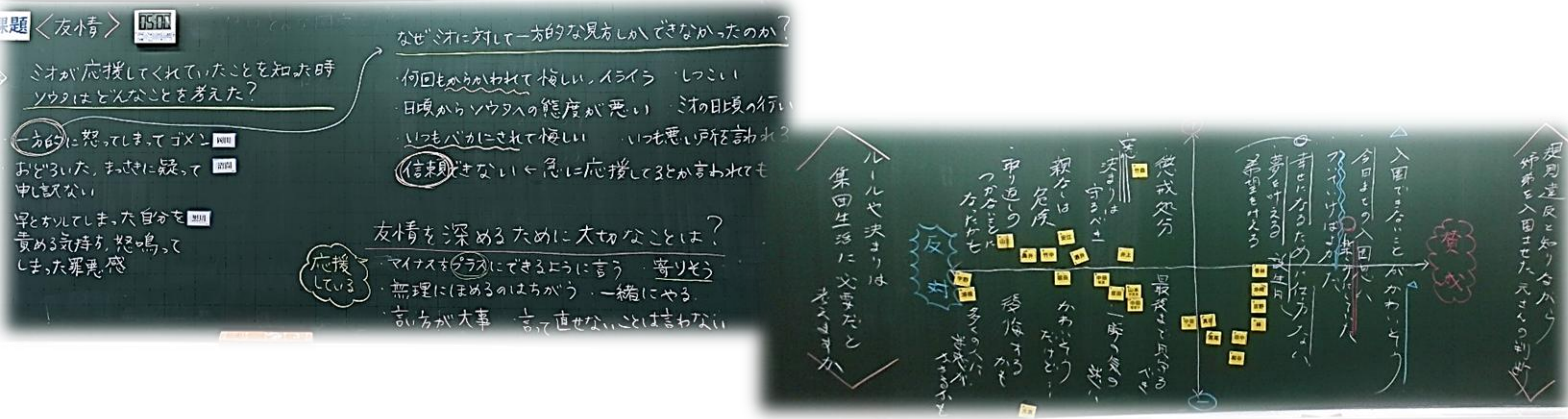 課題
〈友情〉
05:00
ミオが応援してくれていたことを知った時
ソウタはどんなことを考えた?
一方的に怒ってしまってゴメン
おどろいた、まっさきに疑って
申し訳ない
早とちりしてしまった自分を
責める気持ち、怒鳴って
しまった罪悪感
なぜミオに対して一方的な見方しかできなかったのか?
・何回もからかわれて悔しい、イライラ ・しつこい
・日頃からソウタへの態度が悪い ・ミオの日頃の行い
・いつもバカにされて悔しい ・いつも悪い所を言われ
信頼できない ← 急に応援してるとか言われても
友情を深めるために大切なことは?
応援
している
・マイナスをプラスにできるように言う ・寄りそう
・無理にほめるのはちがう ・一緒にやる
・言い方が大事 ・言って直せないことは言わない
規則違反と知りながら
姉弟を入園させた元さんの判断
賛成
入園できないことがかわいそう
今日までの入園
幸せになるために仕方ない
夢を叶える 誕生日
希望を叶える
懲戒処分
決まりは
守るべき
親なしは
危険
取り返しの
つかないことに
なったかも
反対
最後まで見守る
一時の気の迷い
かわいそう
だけど…
後悔する
かも
多くの人に
迷惑が
かかるかも
ルールや決まりは
集団生活に必要だと
考えますか